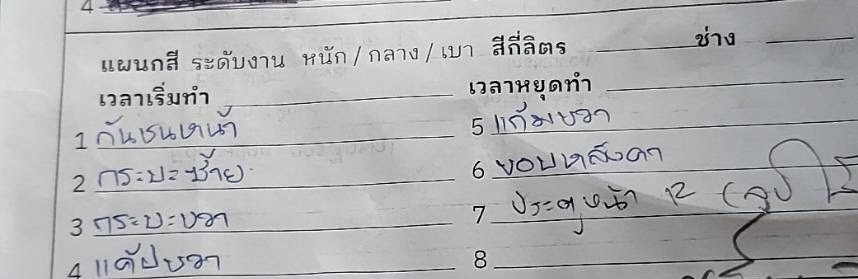 4
แผนกสี ระดับงาน หนัก / กลาง / เบา สีกี่ลิตร ช่าง
เวลาเริ่มทำ เวลาหยุดทำ
1 กันชนหน้า 5 แก้มขวา
2 กระบะซ้าย 6 ขอบหลังคา
3 กระบะขวา 7 ประตูหน้า R
4 แค๊ปขวา 8